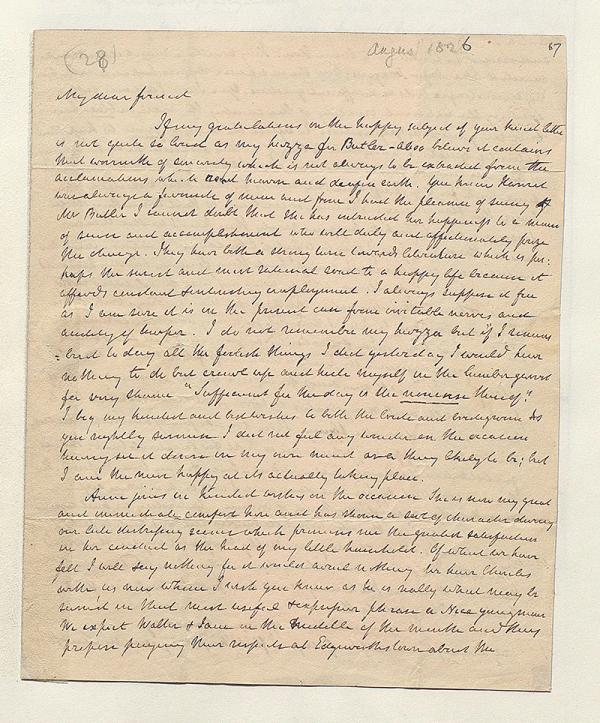 (28)
Augus 1826
67
My dear friend
If my gratulations on the happy subject of your kind letter
is not quite so loud as my huzza for Butler—also believe it contains
that warmth of sincerity which is not always to be extracted from the
acclamations which rend heaven and deafen earth. You know Harriet
was always a favourite of mine and from I had the pleasure of seeing of
Mr Butler I cannot doubt that she has intrusted her happiness to a man
of sense and accomplishment who will duly and affectionately prize
the charge. They have both a strong turn towards literature which is per-
haps the surest and most rational road to a happy life because it
affords constant & interesting employment. I always suppose it free
as I am sure it is in the present case from irritable nerves and
acidity of temper. I do not remember my huzza but if I remem
=bered to day all the foolish things I did yesterday I would have
nothing to do but crawl up and hide myself in the lumber garret
for very shame "Sufficient for the day is the nonsense thereof"
I beg my kindest and best wishes to both the bride and bridegroom As
you rightly surmise I did not feel any wonder on the occasion
having set it down in my own mind as a thing likely to be; but
I am the more happy at its actually taking place.
Anne joins in kindest wishes on the occasion She is now my great
and immediate comfort here and has shown a sort of character during
our late distressing scenes which promises me the greatest satisfaction
in her conduct as the head of my little household. Of what we have
felt I will say nothing for it would avail nothing We have Charles
with us now whom I wish you knew as he is really what may be
termed in that most useful & expressive phrase a Nice young man
We expect Walter & Jane in the middle of the month and they
propose paying their respects at Edgeworthstown about the